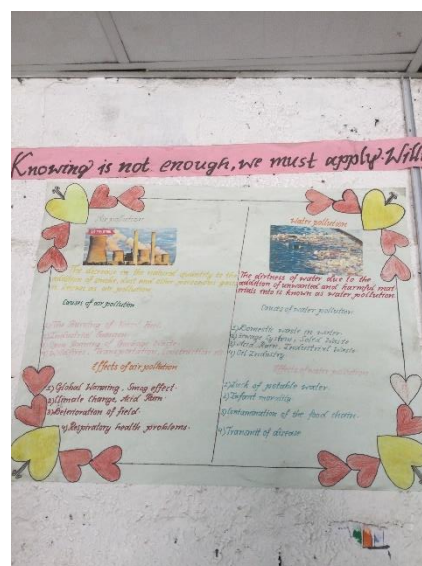 Knowing is not enough, we must apply. Will
Air pollution
The decrease in the natural quantity in the
addition of smoke, dust and other
is known as air pollution
Causes of air pollution
The Burning of
Industrial
Burning of Garbage Waste
Transportation
Effects of air pollution
1) Global Warming, Smog effect
2) Climate Change, Acid Rain
3) Deterioration of field
4) Respiratory health problems.
Water pollution
The dirtness of water due to the
addition of unwanted and harmful mat
erials into is known as water pollution
Causes of water pollution
1) Domestic waste in water
2) Sewage System, Solid Waste
3) Acid Rain, Industrial Waste
4) Oil Industry
Effects of water pollution
1) Lack of potable water
2) Infant
3) Contamination of the food chain
4) Transmit of disease